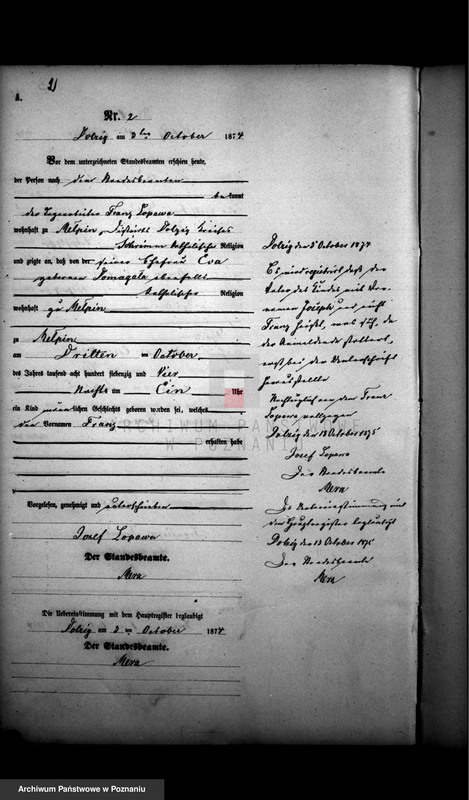 2)
A.
Nr. 2
Dolzig am 3ten October 1874
Vor dem unterzeichneten Standesbeamten erschien heute,
der Person nach dem Standesbeamten
bekannt
der Tagearbeiter Franz Lopawa
wohnhaft zu Melpin, Districts Dolzig Kreises
Schrimm katholischer Religion
und zeigte an, daß von der seiner Ehefrau Eva
geborenen Domagala ebenfalls
katholischer Religion
wohnhaft zu Melpin
zu Melpin
am Dritten October
des Jahres tausend acht hundert siebenzig und Vier
Nachts um Ein Uhr
ein Kind männlichen Geschlechts geboren worden sei, welches
den Vornamen Franz
erhalten habe
Vorgelesen, genehmigt und unterschrieben
Josef Lopawa
Der Standesbeamte.
Mera
Die Uebereinstimmung mit dem Hauptregister beglaubigt
Dolzig am 3ten October 1874
Der Standesbeamte.
Mera
Dolzig den October 187
Es wird registrirt daß der
Vater des Kindes mit Vor-
namen Joseph und nicht
Franz heißt, was sich, da
der Anmeldende
erst bei der Unterschrift
herausstellte
von dem Franz
Lopawa vollzogen
Dolzig den 13 October 1875
Josef Lopawa
Der Standesbeamte
Mera
Die Uebereinstimmung mit
dem Hauptregister beglaubigt
Dolzig den 13 October 1875
Der Standesbeamte
Mera
ARCHIWUM PAŃSTWOWE
W POZNANIU
Archiwum Państwowe w Poznaniu